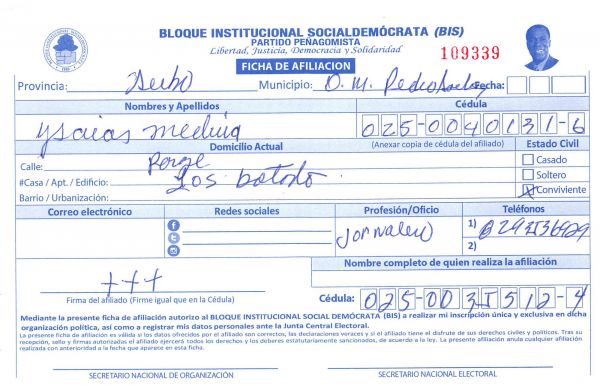 BLOQUE INSTITUCIONAL SOCIALDEMÓCRATA (BIS)
PARTIDO PEÑAGOMISTA
Libertad, Justicia, Democracia y Solidaridad
109339
FICHA DE AFILIACION
Provincia: Municipio: D. M. Fecha:
Nombres y Apellidos Cédula
ysaias medina 025-0040131-6
Domicilio Actual (Anexar copia de cédula del afiliado) Estado Civil
Calle: Casado
#Casa / Apt. / Edificio: Los Soltero
Barrio / Urbanización: X Conviviente
Correo electrónico Redes sociales Profesión/Oficio Teléfonos
Jornalero 1)
2)
Nombre completo de quien realiza la afiliación
+++
Firma del afiliado (Firme igual que en la Cédula) Cédula: 025-0035512-4
Mediante la presente ficha de afiliación autorizo al BLOQUE INSTITUCIONAL SOCIAL DEMÓCRATA (BIS) a realizar mi inscripción única y exclusiva en dicha
organización política, así como a registrar mis datos personales ante la Junta Central Electoral.
La presente ficha de afiliación es válida si los datos ofrecidos por el afiliado son correctos, las declaraciones veraces y si el afiliado tiene el disfrute de sus derechos civiles y políticos. Tras su
recepción, sello y firmas autorizadas el afiliado ejercerá todos los derechos y los deberes estatutariamente sancionados, de acuerdo a la ley. La presente afiliación anula cualquier afiliación
realizada con anterioridad a la fecha que aparece en esta ficha.
SECRETARIO NACIONAL DE ORGANIZACIÓN SECRETARIO NACIONAL ELECTORAL